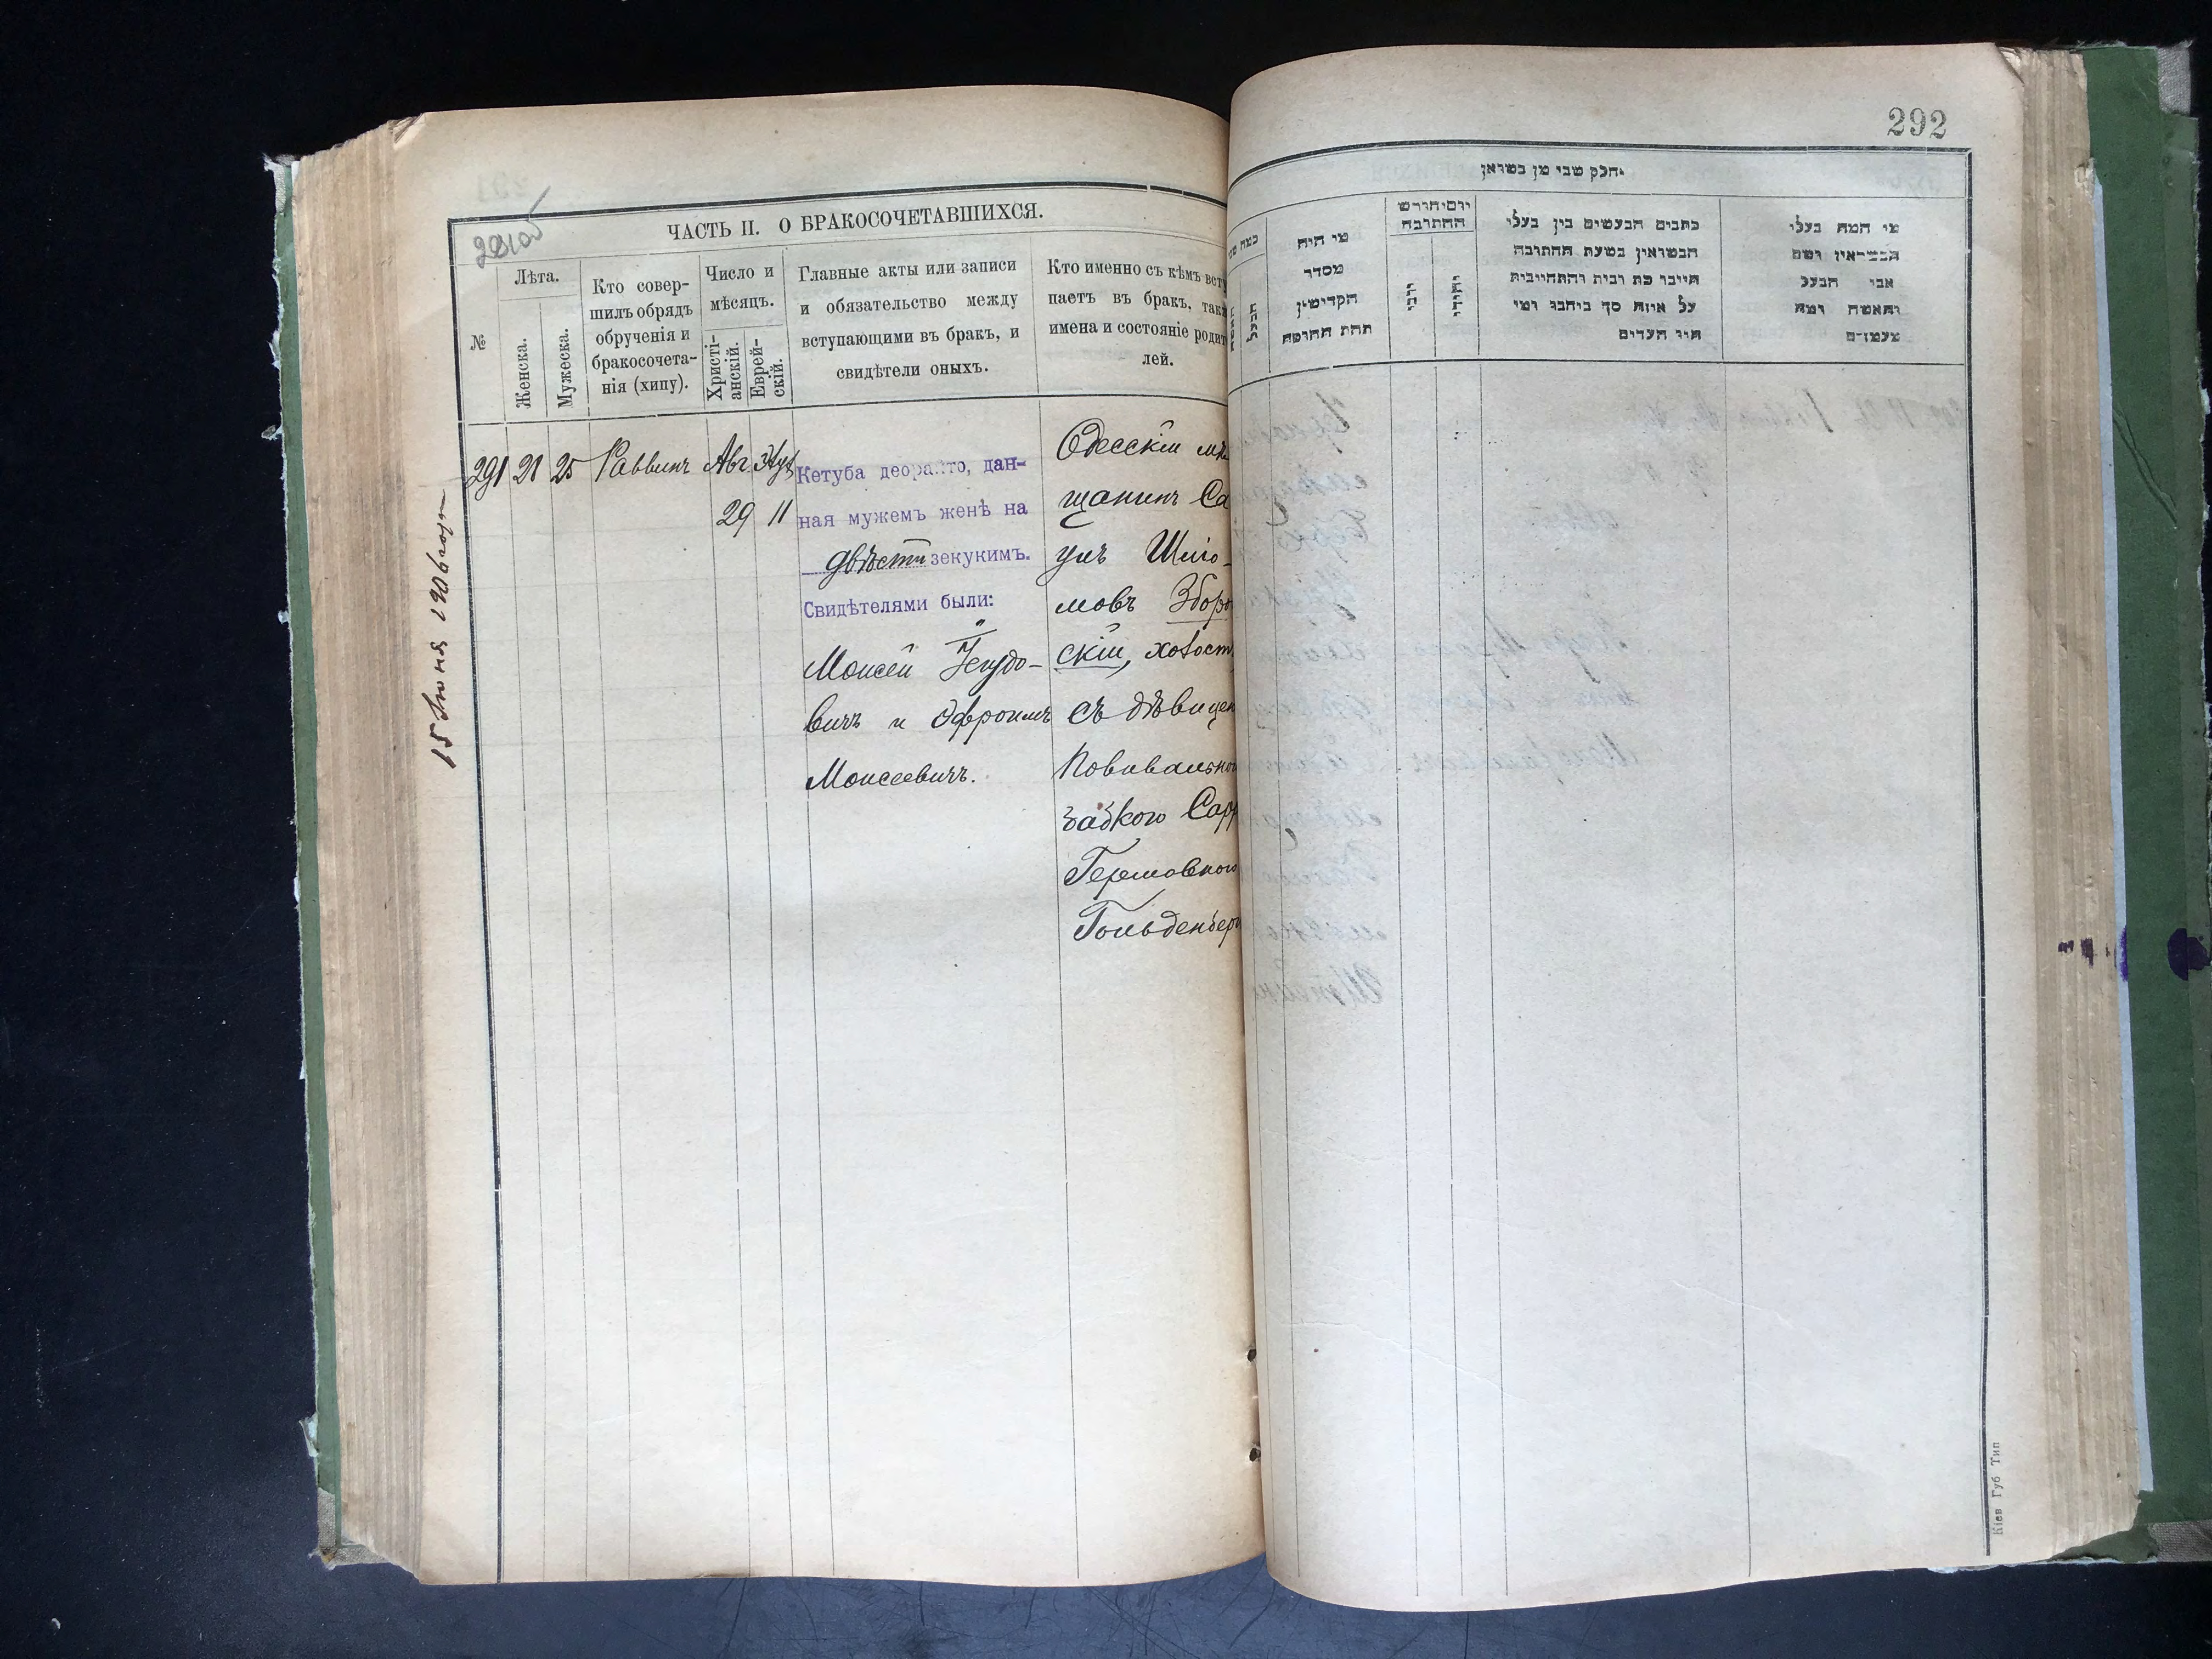 291об
ЧАСТЬ II. О БРАКОСОЧЕТАВШИХСЯ.
№
Лѣта.
Женска.
Мужеска.
Кто совер-
шилъ обрядъ
обрученія и
бракосочета-
нія (хипу).
Число и
мѣсяцъ.
Христі-
анскій.
Еврей-
скій.
Главные акты или записи
и обязательство между
вступающими въ бракъ, и
свидѣтели оныхъ.
Кто именно съ кѣмъ всту
паетъ въ бракъ, так
имена и состояніе родит
лей.
291 21 25 Раввинъ Авг.
29 11
Кетуба деорайто, дан-
ная мужемъ женѣ на
двѣсти зекукимъ.
Свидѣтелями были:
Моисей
вичъ и Эфроимъ
Моисеевичъ.
Одесскій мѣ
щанинъ Са
улъ Шлiо-
мовъ Збор
скій, холост
съ дѣвицею
Повивальною
бабкою Сарр
Гершовною
Гольденберг
15 Іюня 1906
292
חלק שני מן נשואין
מי המה בעלי
הנשואין ושם
אבי הבעל
והאשה ומה
מעמדם
כתבים הנעשים בין בעלי
הנשואין בשעת החתונה
חייבו כח ובית והתחייבות
על איזה סך ביחבו ומי
היו העדים
יום וחורש
החתונה
יהודי
נוצרי
מי היה
מסדר
הקדישין
תחת החופה
כמה שני
הבעל
האשה
Кіев Губ Тип